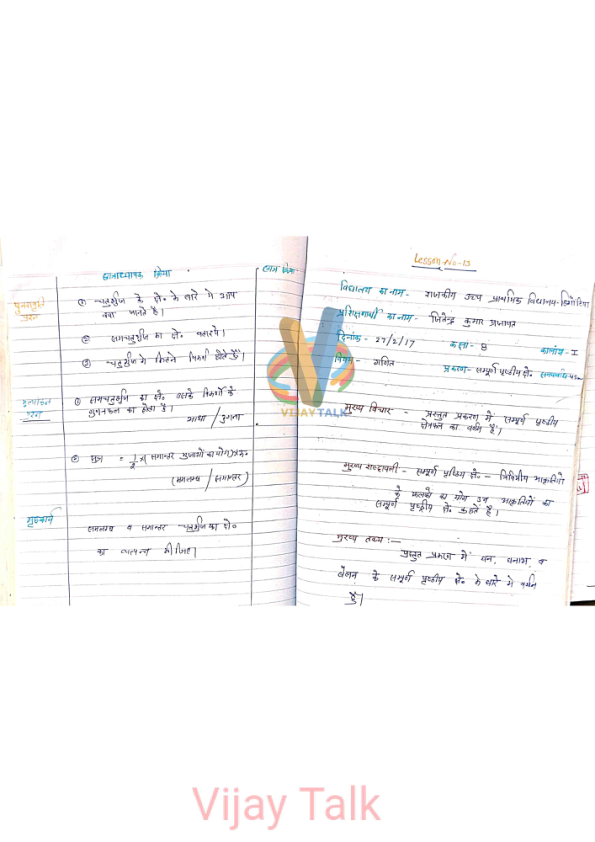 छात्राध्यापक क्रिया
छात्र क्रिया
पुनरावृत्ति
प्रश्न
① चतुर्भुज के क्षे० के बारे में आप
क्या जानते हैं।
② समचतुर्भुज का क्षे० बताइये।
③ चतुर्भुज में कितने विकर्ण होते हैं।
मूल्यांकन
प्रश्न
① समचतुर्भुज का क्षे० उसके विकर्णों के
गुणनफल का होता है।
आधा / दुगना
② सूत्र = 1/2 x (समान्तर भुजाओं का योग)
(समलम्ब / समान्तर)
गृहकार्य
समलम्ब व समान्तर चतुर्भुज का क्षे०
का कीजिए।
Lesson No-13
विद्यालय का नाम - राजकीय उच्च प्राथमिक विद्यालय-
प्रशिक्षणार्थी का नाम - जितेन्द्र कुमार प्रजापत
दिनांक - 27/2/17 कक्षा - 8 कालांश - I
विषय - गणित प्रकरण - सम्पूर्ण पृष्ठीय क्षे०
मुख्य विचार - प्रस्तुत प्रकरण में सम्पूर्ण पृष्ठीय
क्षेत्रफल का वर्णन है।
मुख्य - सम्पूर्ण पृष्ठीय क्षे० - त्रिविमीय आकृतियों
के फलकों का योग उन आकृतियों का
सम्पूर्ण पृष्ठीय क्षे० कहते हैं।
मुख्य तथ्य :-
प्रस्तुत प्रकरण में घन, घनाभ, व
बेलन के सम्पूर्ण पृष्ठीय क्षे० के बारे में वर्णन
है।
VIJAY TALK
Vijay Talk